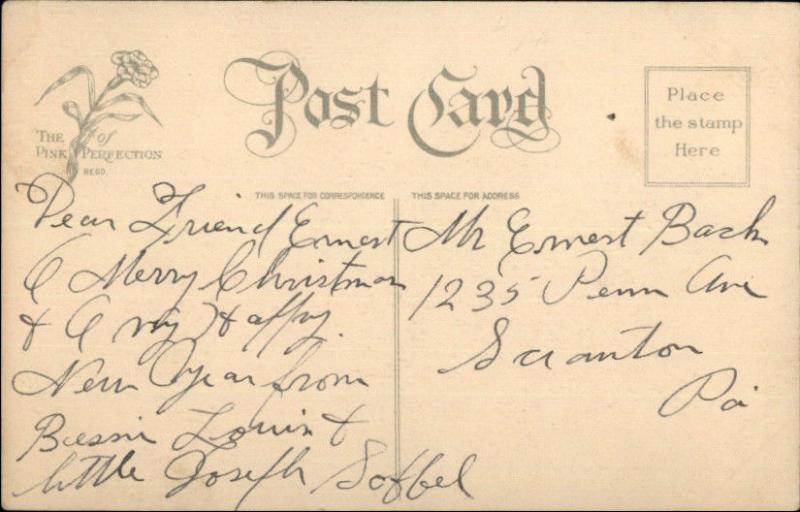 THE of
PINK PERFECTION
REGD.
Post Card
Place
the stamp
Here
THIS SPACE FOR CORRESPONDENCE
Dear Friend Ernest
A Merry Christmas
& A Happy
New Year from
Bessie Louis &
little Joseph Soffel
THIS SPACE FOR ADDRESS
Mr Ernest Back
1235 Penn Ave
Scranton
Pa